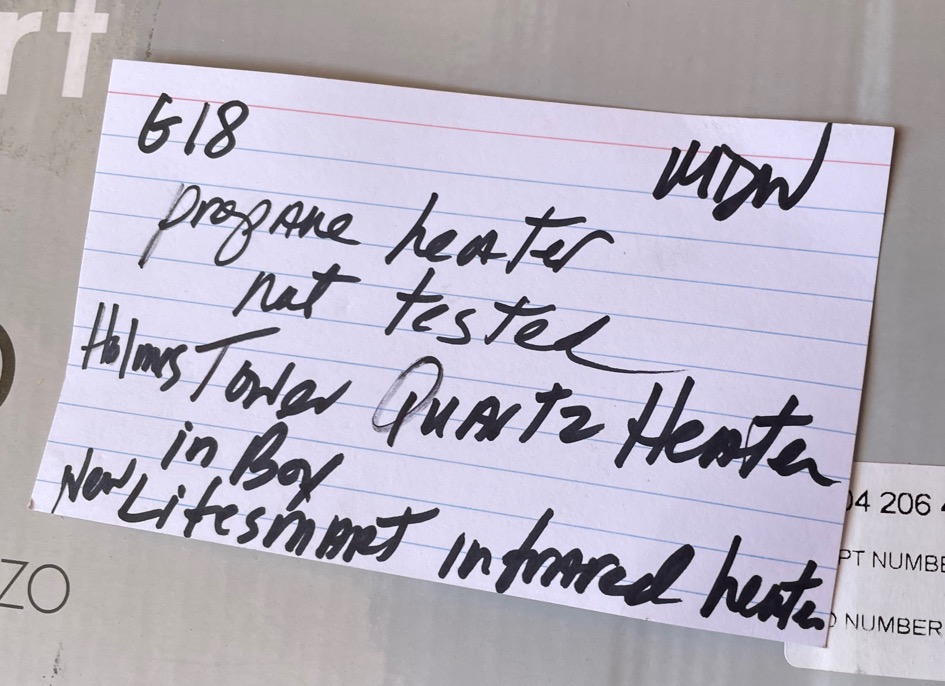 rt
G18
MDW
propane heater
not tested
Holmes Tower Quartz Heater
in Box
New Lifesmart infrared heater
04 206 4
PT NUMBE
D NUMBER
ZO